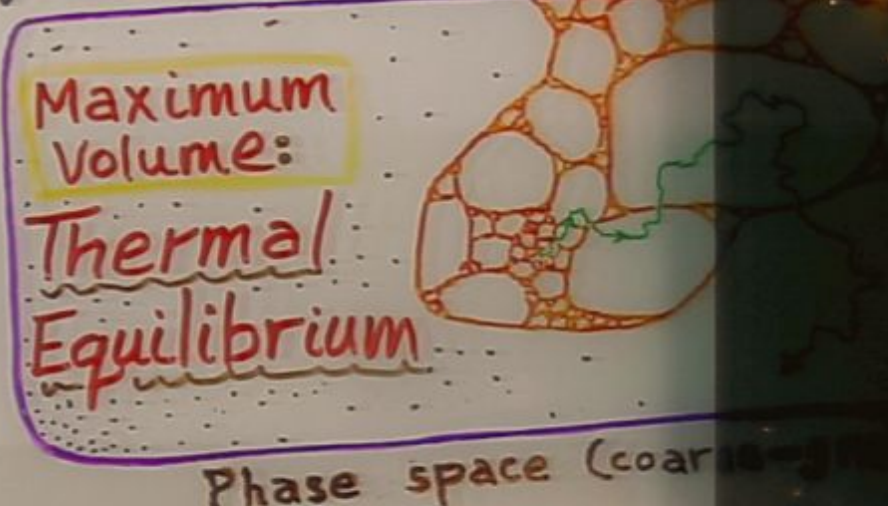 Maximum
Volume:
Thermal
Equilibrium
Phase space (coarse-gr